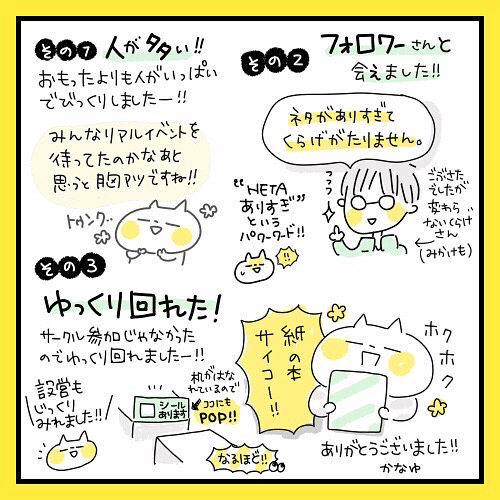 その1 人が多い!!
おもったよりも人がいっぱい
でびっくりしましたー!!
みんなリアルイベントを
待ってたのかなあと
思うと胸アツですね!!
トゥンク…
その2 フォロワーさんと
会えました!!
ネタがありすぎて
くらげがたりません。
フフフ
"NETA
ありすぎ"
という
パワーワード!!
!!
ごぶさた
でしたが
変わら
ないくらげ
さん
(みかけも)
その3
ゆっくり回れた!
サークル参加じゃなかった
のでゆっくり回れましたー!!
設営も
じっくり
みれました!!
机がはな
れているので
シール
あります
ココにも
POP!!
なるほど!!
紙の本
サイコー!!
ホク
ホク
ありがとうございました!!
かなゆ